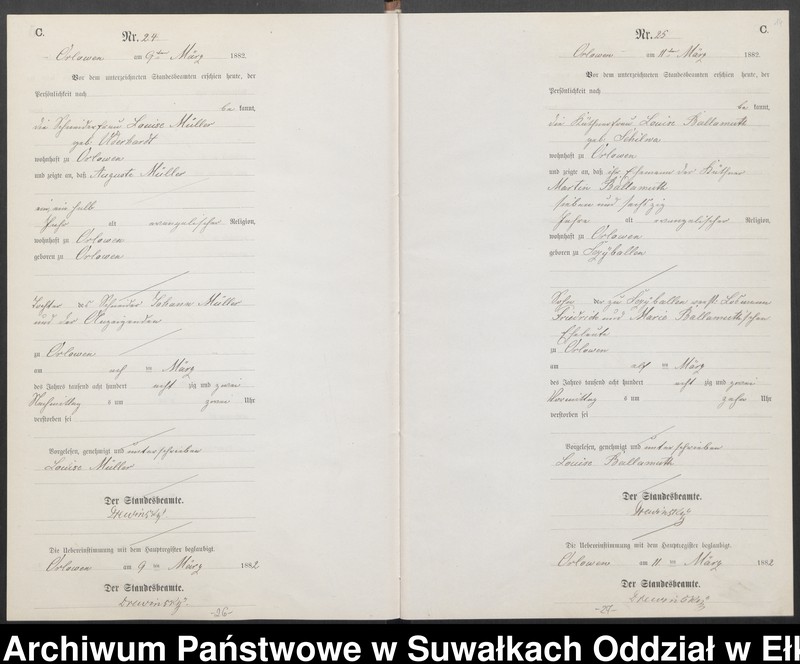 C.
Nr. 24
Orlowen am 9ten März 1882.
Vor dem unterzeichneten Standesbeamten erschien heute, der
Persönlichkeit nach
be kannt,
die Schneiderfrau Louise Müller
geb.
wohnhaft zu Orlowen
und zeigte an, daß Auguste Müller
ein ein halb
Jahr alt evangelischer Religion,
wohnhaft zu Orlowen
geboren zu Orlowen
Tochter des Schneider Johann Müller
und der Anzeigenden
zu Orlowen
am März
des Jahres tausend acht hundert acht zig und zwei
Nachmittag s um zwei Uhr
verstorben sei
Vorgelesen, genehmigt und unterschrieben
Louise Müller
Der Standesbeamte.
Drewinsky
Die Uebereinstimmung mit dem Hauptregister beglaubigt.
Orlowen am 9 ten März 1882
Der Standesbeamte.
Drewinsky
-26-
C.
Nr. 25
Orlowen am 11ten März 1882.
Vor dem unterzeichneten Standesbeamten erschien heute, der
Persönlichkeit nach
be kannt,
die Käthnerfrau Louise Ballamuth
geb.
wohnhaft zu Orlowen
und zeigte an, daß ihr Ehemann der Käthner
Martin Ballamuth
sieben und sechzig
Jahre alt evangelischer Religion,
wohnhaft zu Orlowen
geboren zu
Sohn der zu verst. Losmann
Friedrich und Marie Ballamuth'schen
Eheleute
zu Orlowen
am elf ten März
des Jahres tausend acht hundert acht zig und zwei
Vormittag s um zehn Uhr
verstorben sei
Vorgelesen, genehmigt und unterschrieben
Louise Ballamuth
Der Standesbeamte.
Drewinsky
Die Uebereinstimmung mit dem Hauptregister beglaubigt.
Orlowen am 11 ten März 1882
Der Standesbeamte.
Drewinsky
-27-
Archiwum Państwowe w Suwałkach Oddział w Ełk